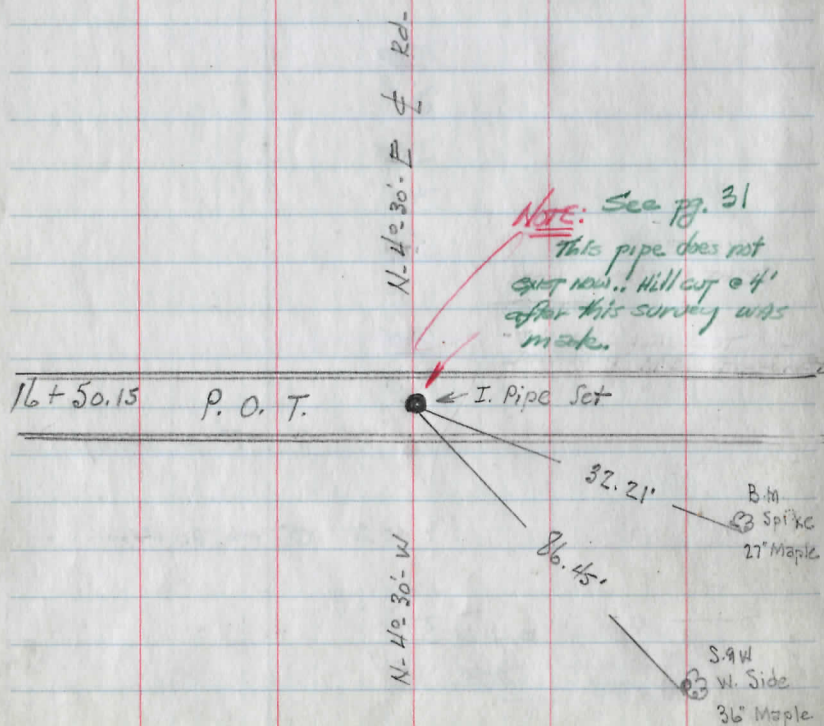 N-4°-30'-E ℄ Rd-
NOTE: See pg. 31
This pipe does not
exist now.. Hill cut @ 4'
after this survey was
made.
16+50.15 P. O. T. ← I. Pipe Set
32.21'
B.M
Spike
27" Maple
86.45'
N-4°-30'-W
S.&W
W. Side
36" Maple